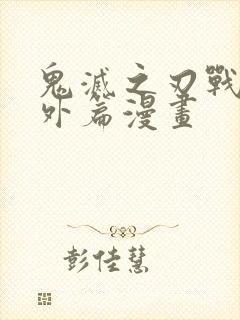 鬼滅之刃戰
外篇漫畫
彭佳慧